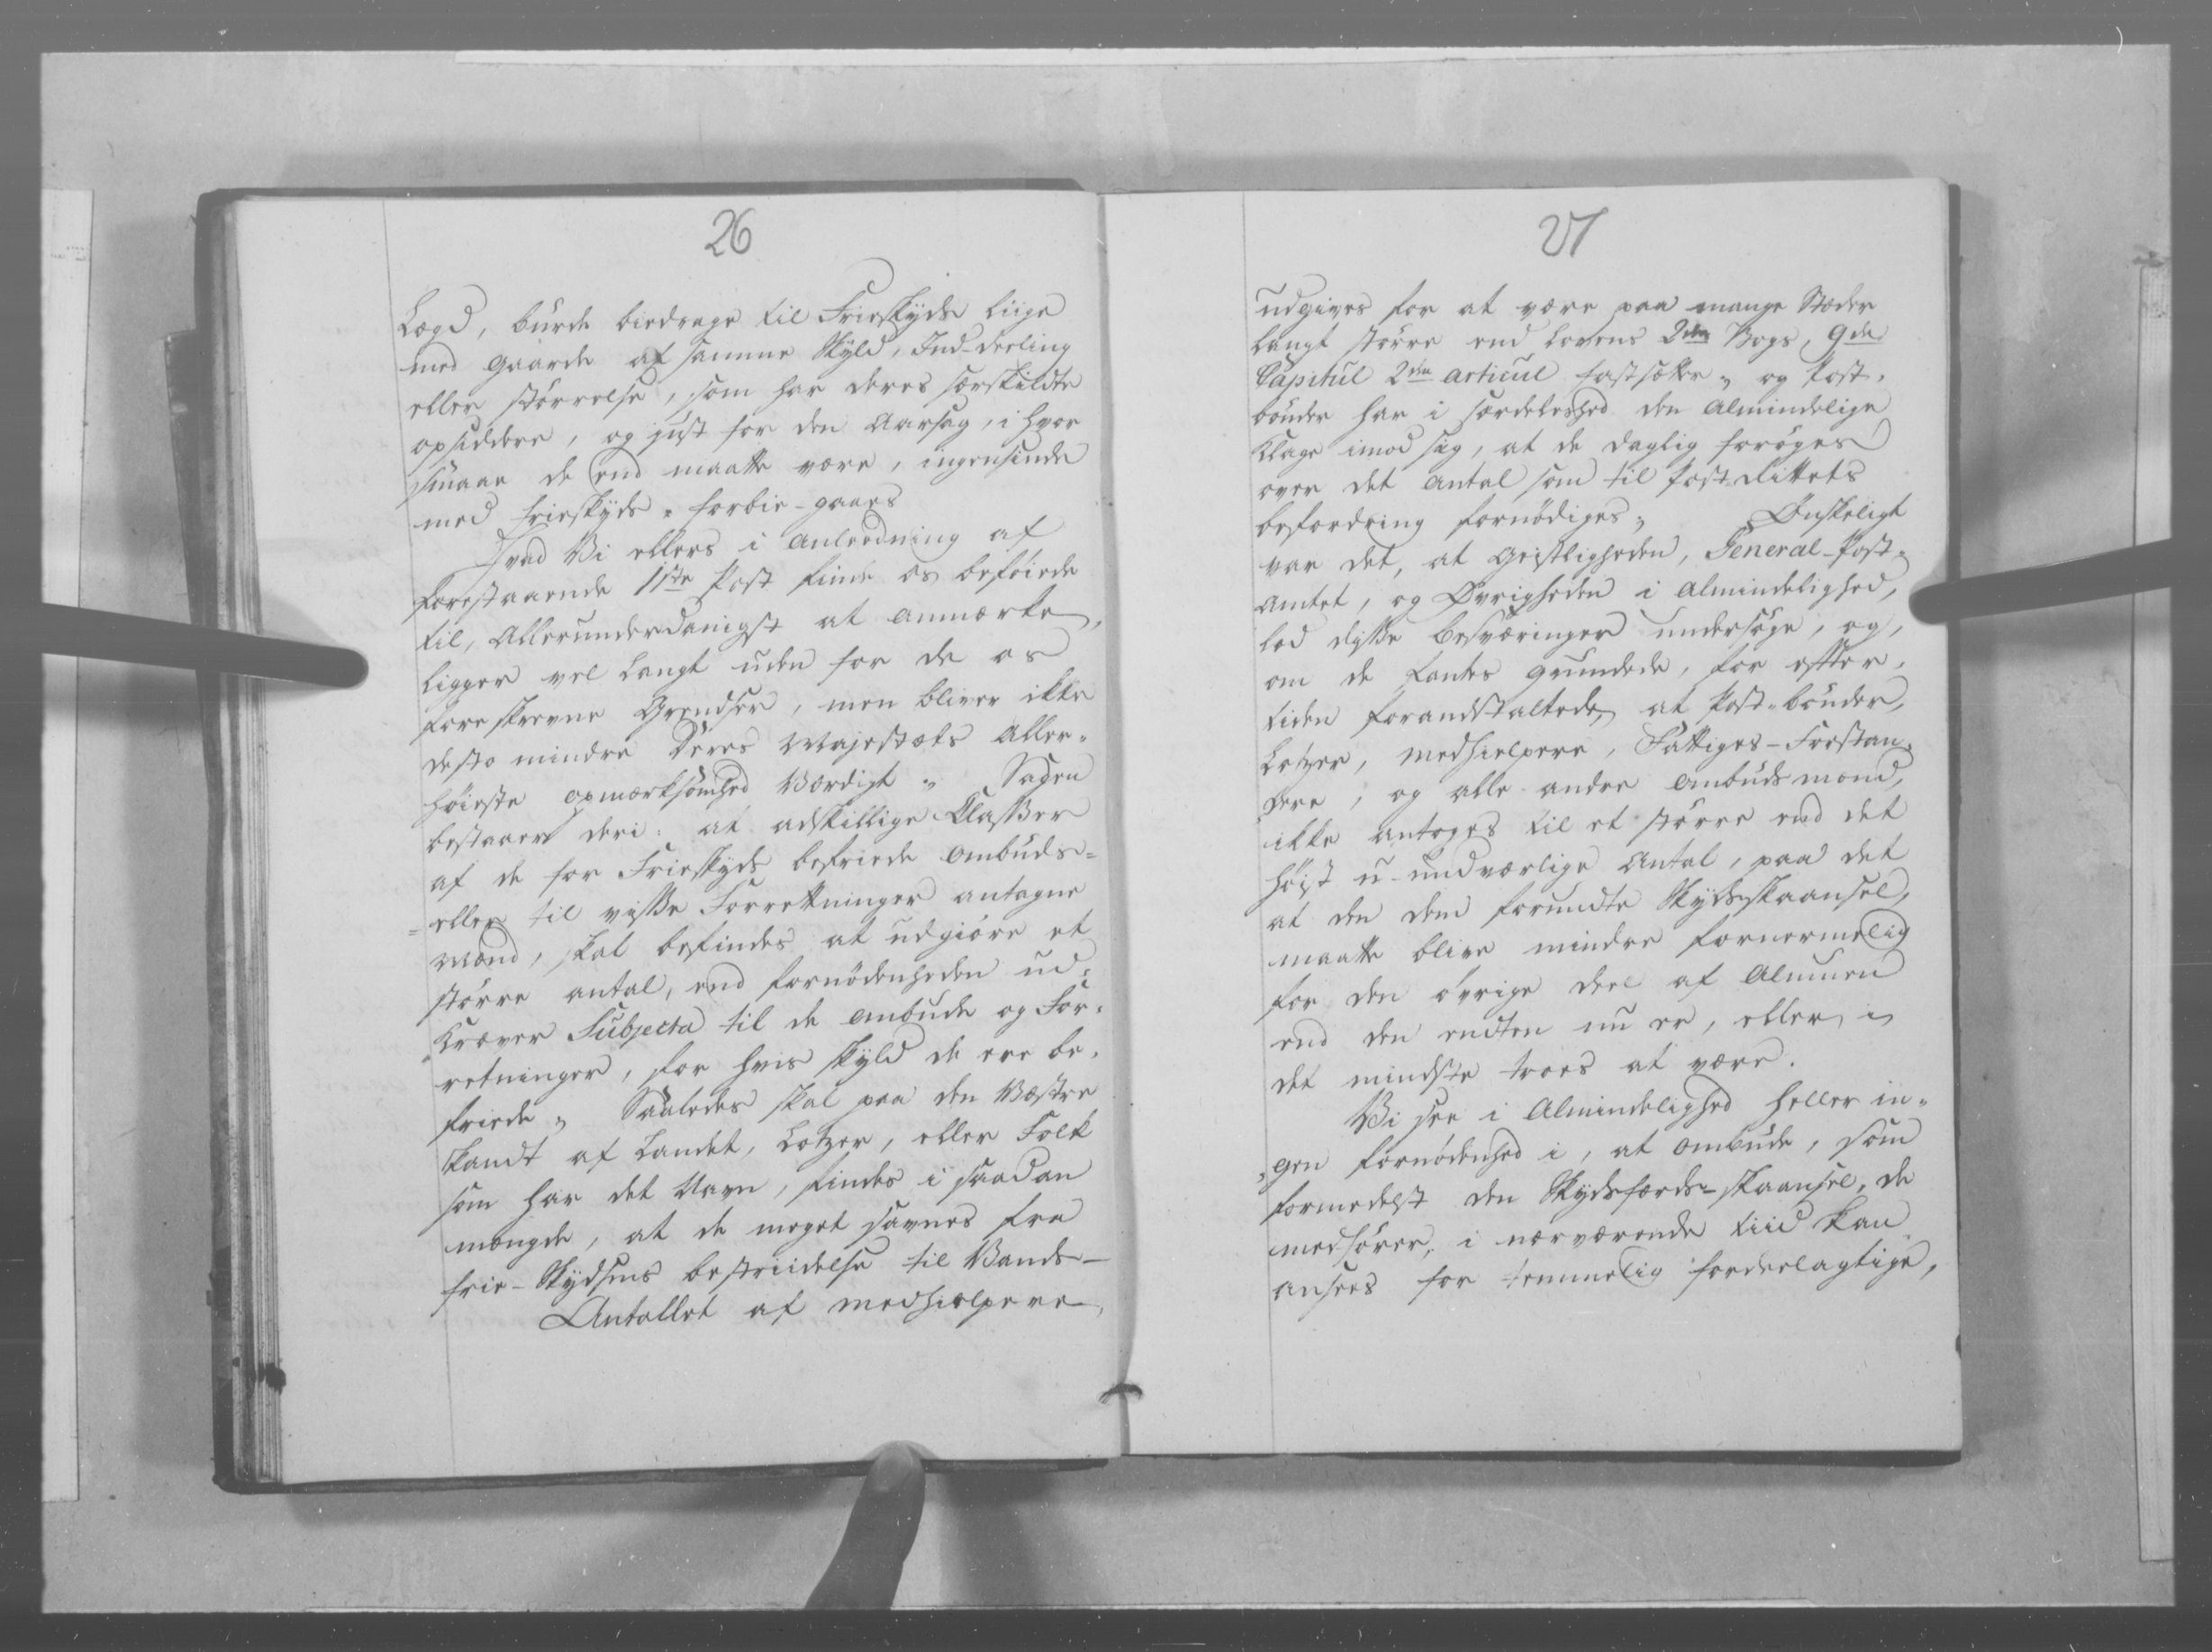 26
Lægd, burde biedrage til Frieskyds liige
med gaarde af samme Skyld, Ind-deeling
eller störrelse, som har deres særskildte
opsiddere, og just for den Aarsag, i hvor
smaae de end maatte være, ingensinde
med frieskyds forbie-gaaes
Hvad Vi ellers i anleedning af
forestaaende 1ste Post finde os beföiede
til, Allerunderdanigst at anmærke,
ligger vel langt uden for de os
foreskrevne Grændser, men bliver ikke
desto mindre Deres Majestæts Aller=
höieste opmærksomhed Værdigt „ Sagen
bestaaer deri: at adskillige Klasser
af de for Frieskyds befriede ombuds=
=eller til visse Forrettninger antagne
Mænd, skal befindes at udgiöre et
större antal, end fornödenheden ud=
kræver Subjecta til de ombude og For=
retninger, for hvis skyld de ere be=
friede „ Saaledes skal paa den Væstre
kandt af Landet, Lotzer, eller Folk
som har det Navn, findes i saadan
mængde, at de meget savnes fra
frie-Skydsens bestriidelse til Vands-
Antallet af medhielpere
27
udgives for at være paa mange Stæder
langt större end Lovens 2den Bogs, 9de
Capitul 2den articul fastsætter „ og Post=
bönder har i særdeleshed den Almindelige
Klage imod sig, at de daglig foröges
over det antal som til Post-
befordring fornödiges „ Önskeligt
var det, at Geistligheden, General-Post=
amtet, og Øvrigheden i Almindelighed,
lod disse besværinger undersöge, og,
om de fantes grundede, for effter=
tiden foranstaltede, at Post-bönder,
Lotzer, medhielpere, Fattiges-Forstan=
dere, og alle andre ombuds mænd,
ikke antoges til et större end det
höist u-undværlige Antal, paa det
at den dem forundte Skydsskaansel,
maatte blive mindre fornærmelig
for den övrige deel af Almuen
end den endten nu er, eller i
det mindste troes at være.
Vi see i Almindelighed heller in=
„gen fornödenhed i, at ombude, som
formedelst den Skydsfærds-skaansel, de
medförer, i nærværende tiid kan
ansees for temmelig fordeelagtige,